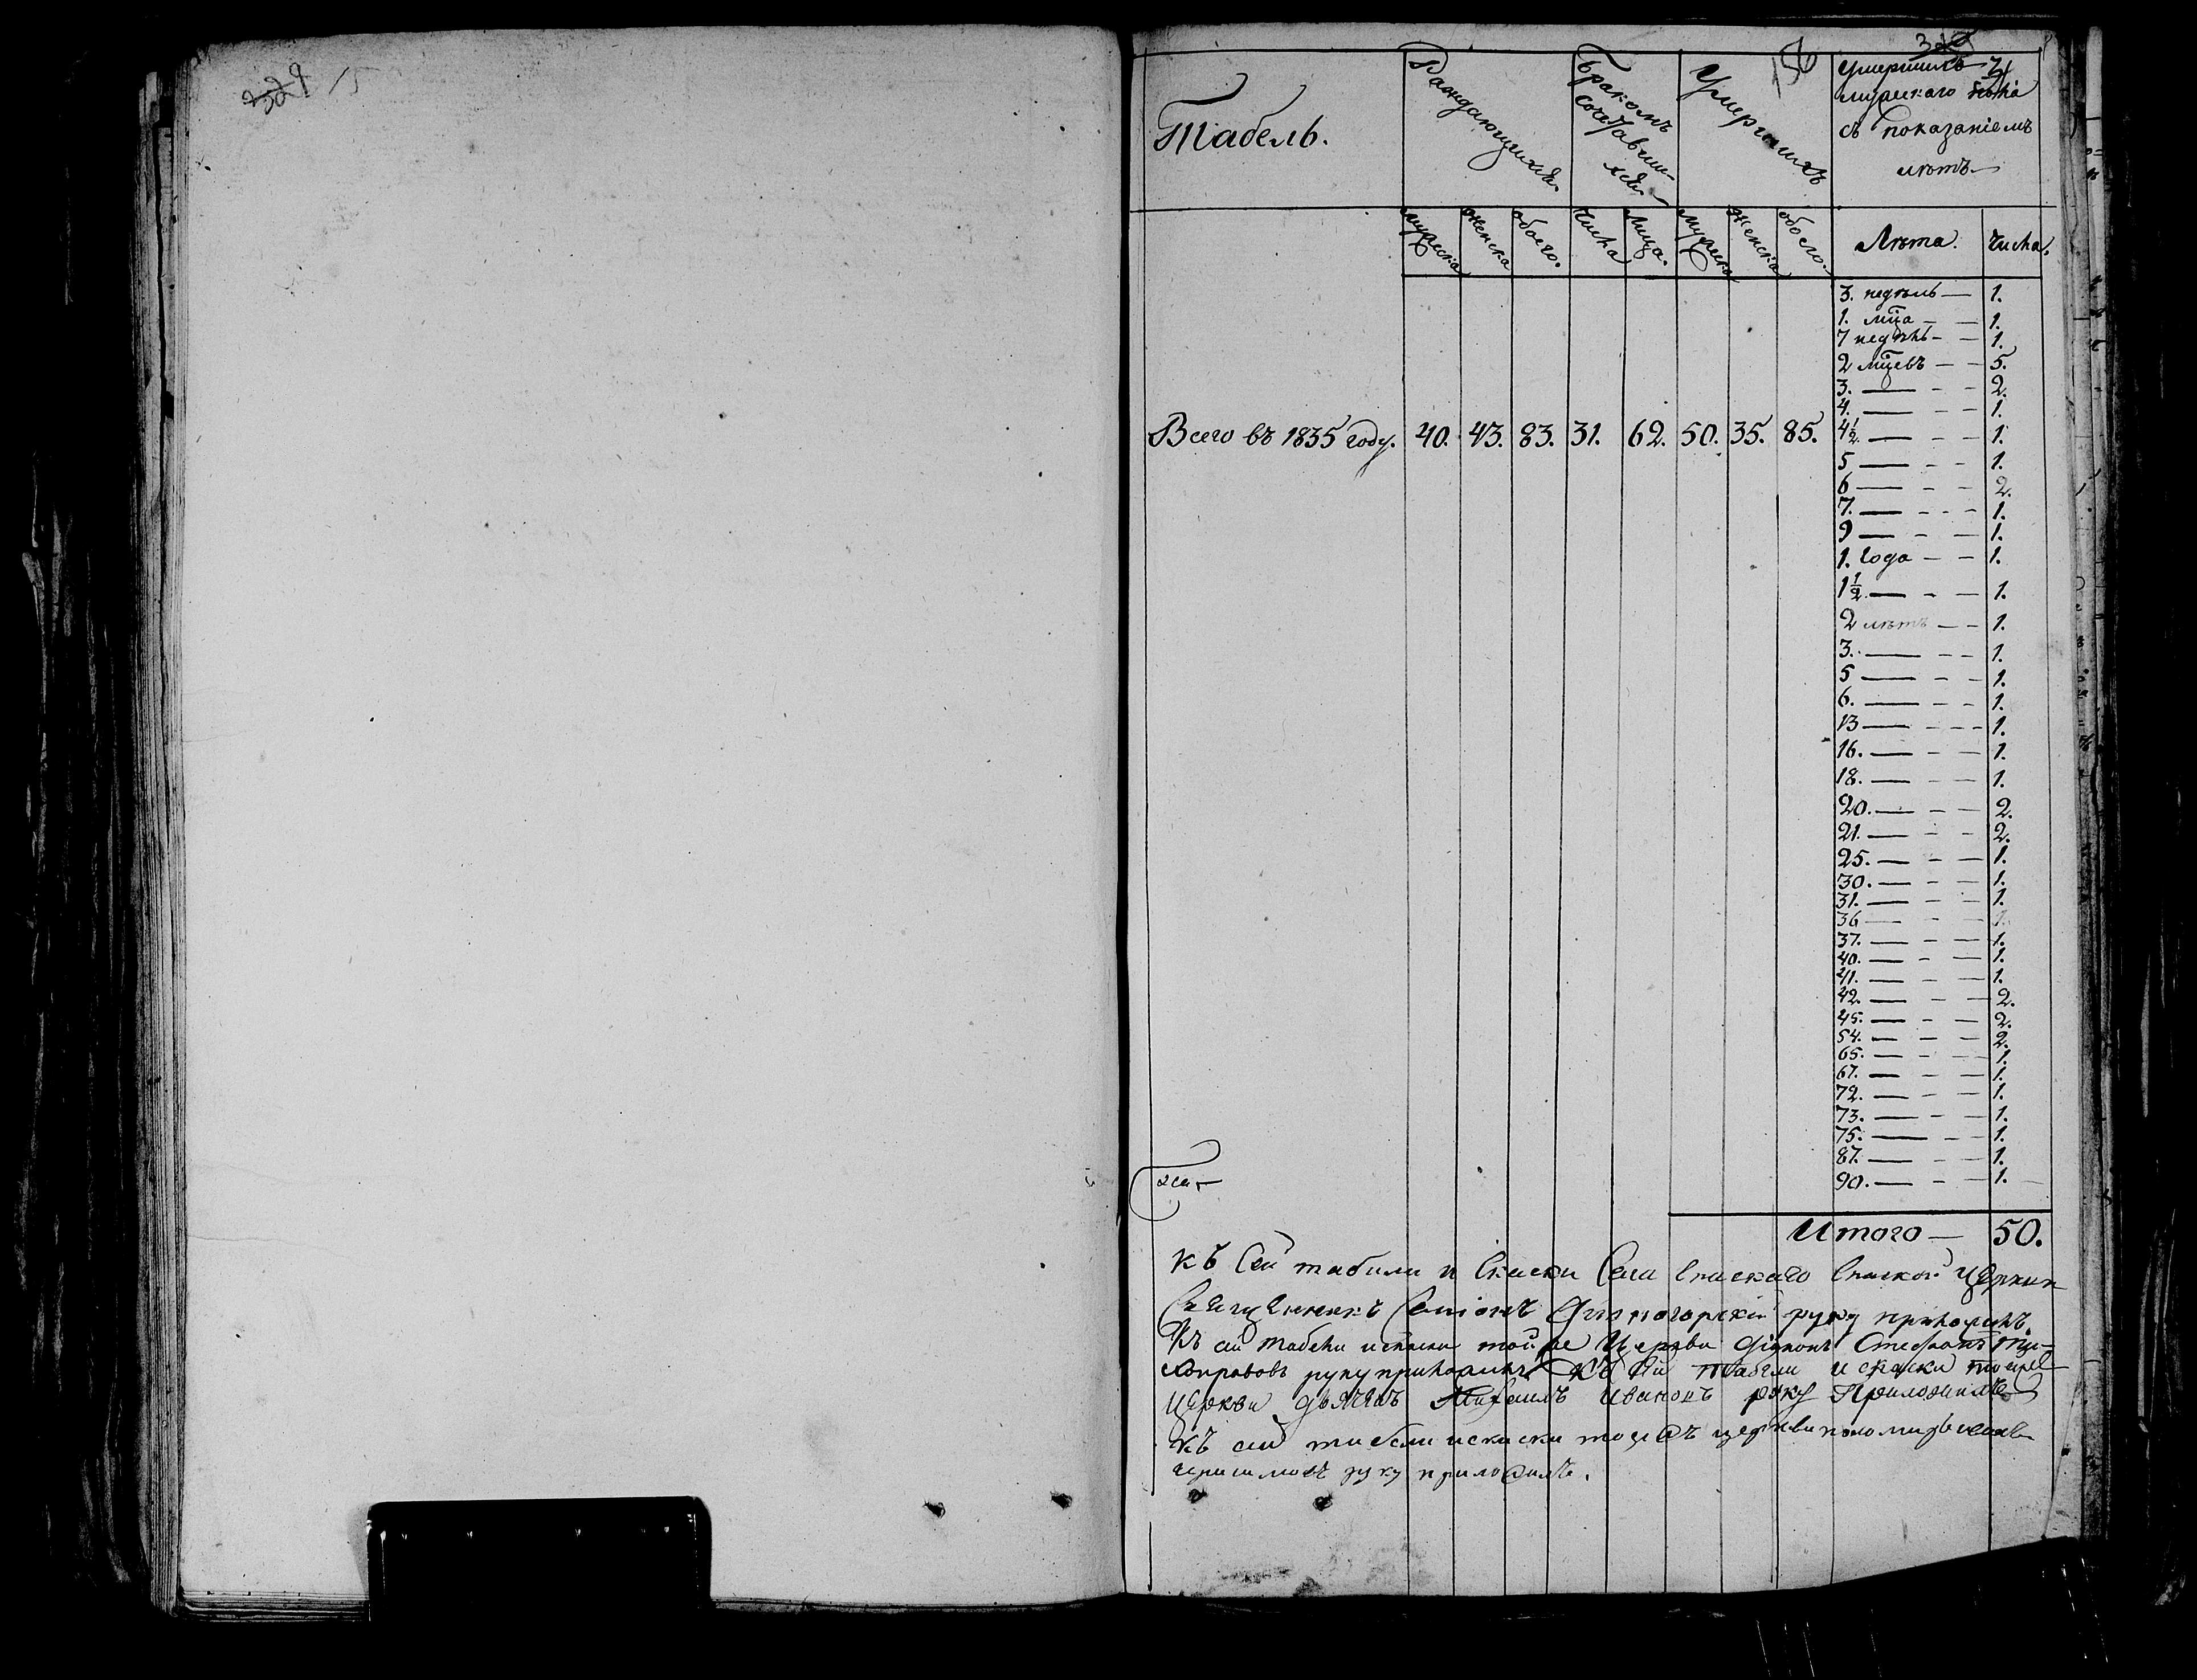 329 15
156
Табель.
Раждающихся
Бракомъ
сочетавши-
хся
Умершихъ
Умершихъ
мужескаго пола
съ показаніемъ
лѣтъ
мужеска женска обоего. числа лица. мужеска женска обоего. Лѣта. числа.
3. недѣль — 1.
1. мца — 1.
7 недѣль — 1.
2 мцевъ — 5.
3. — 2.
4. — 1.
Всего въ 1835 году. 40. 43. 83. 31. 62. 50. 35. 85. 4½ — 1.
5 — 1.
6 — 2.
7. — 1.
9 — 1.
1. года — 1.
1½. — 1.
2 лѣтъ — 1.
3. — 1.
5 — 1.
6. — 1.
13 — 1.
16. — 1.
18. — 1.
20. — 2.
21. — 2.
25. — 1.
30. — 1.
31. — 1.
36 — 1.
37. — 1.
40. — 1.
41. — 1.
42. — 2.
45. — 2.
54. — 2.
65. — 1.
67. — 1.
72. — 1.
73. — 1.
75. — 1.
87. — 1.
90. — 1.
Итого — 50.
Къ сей табели и скаски села Спаскаго Спаской церкви
Священникъ Симіонъ руку приложилъ
Къ сей табели искаски той же Церкви Діяконъ Стефанъ
руку приложилъ Къ сей табели и скаски тояже
церкви дьячекъ Михаилъ Ивановъ руку Приложилъ
Къ сей табели искаски тоежъ церкви пономарь
руку приложилъ.